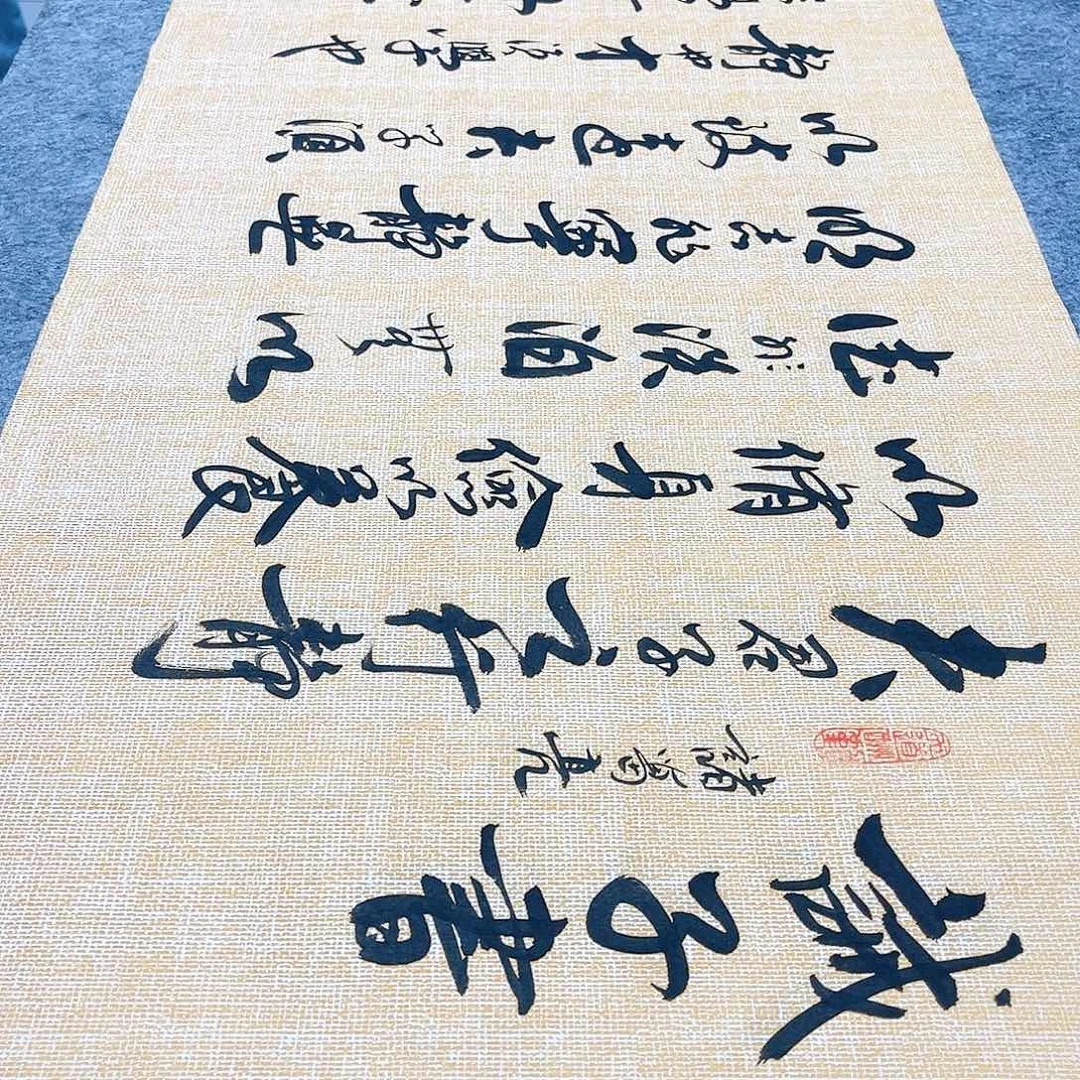 誡子書
諸葛亮
夫君子之行靜
以修身儉以養
德非淡泊無以
明志非寧靜無
以致遠夫學須
靜也才須學也